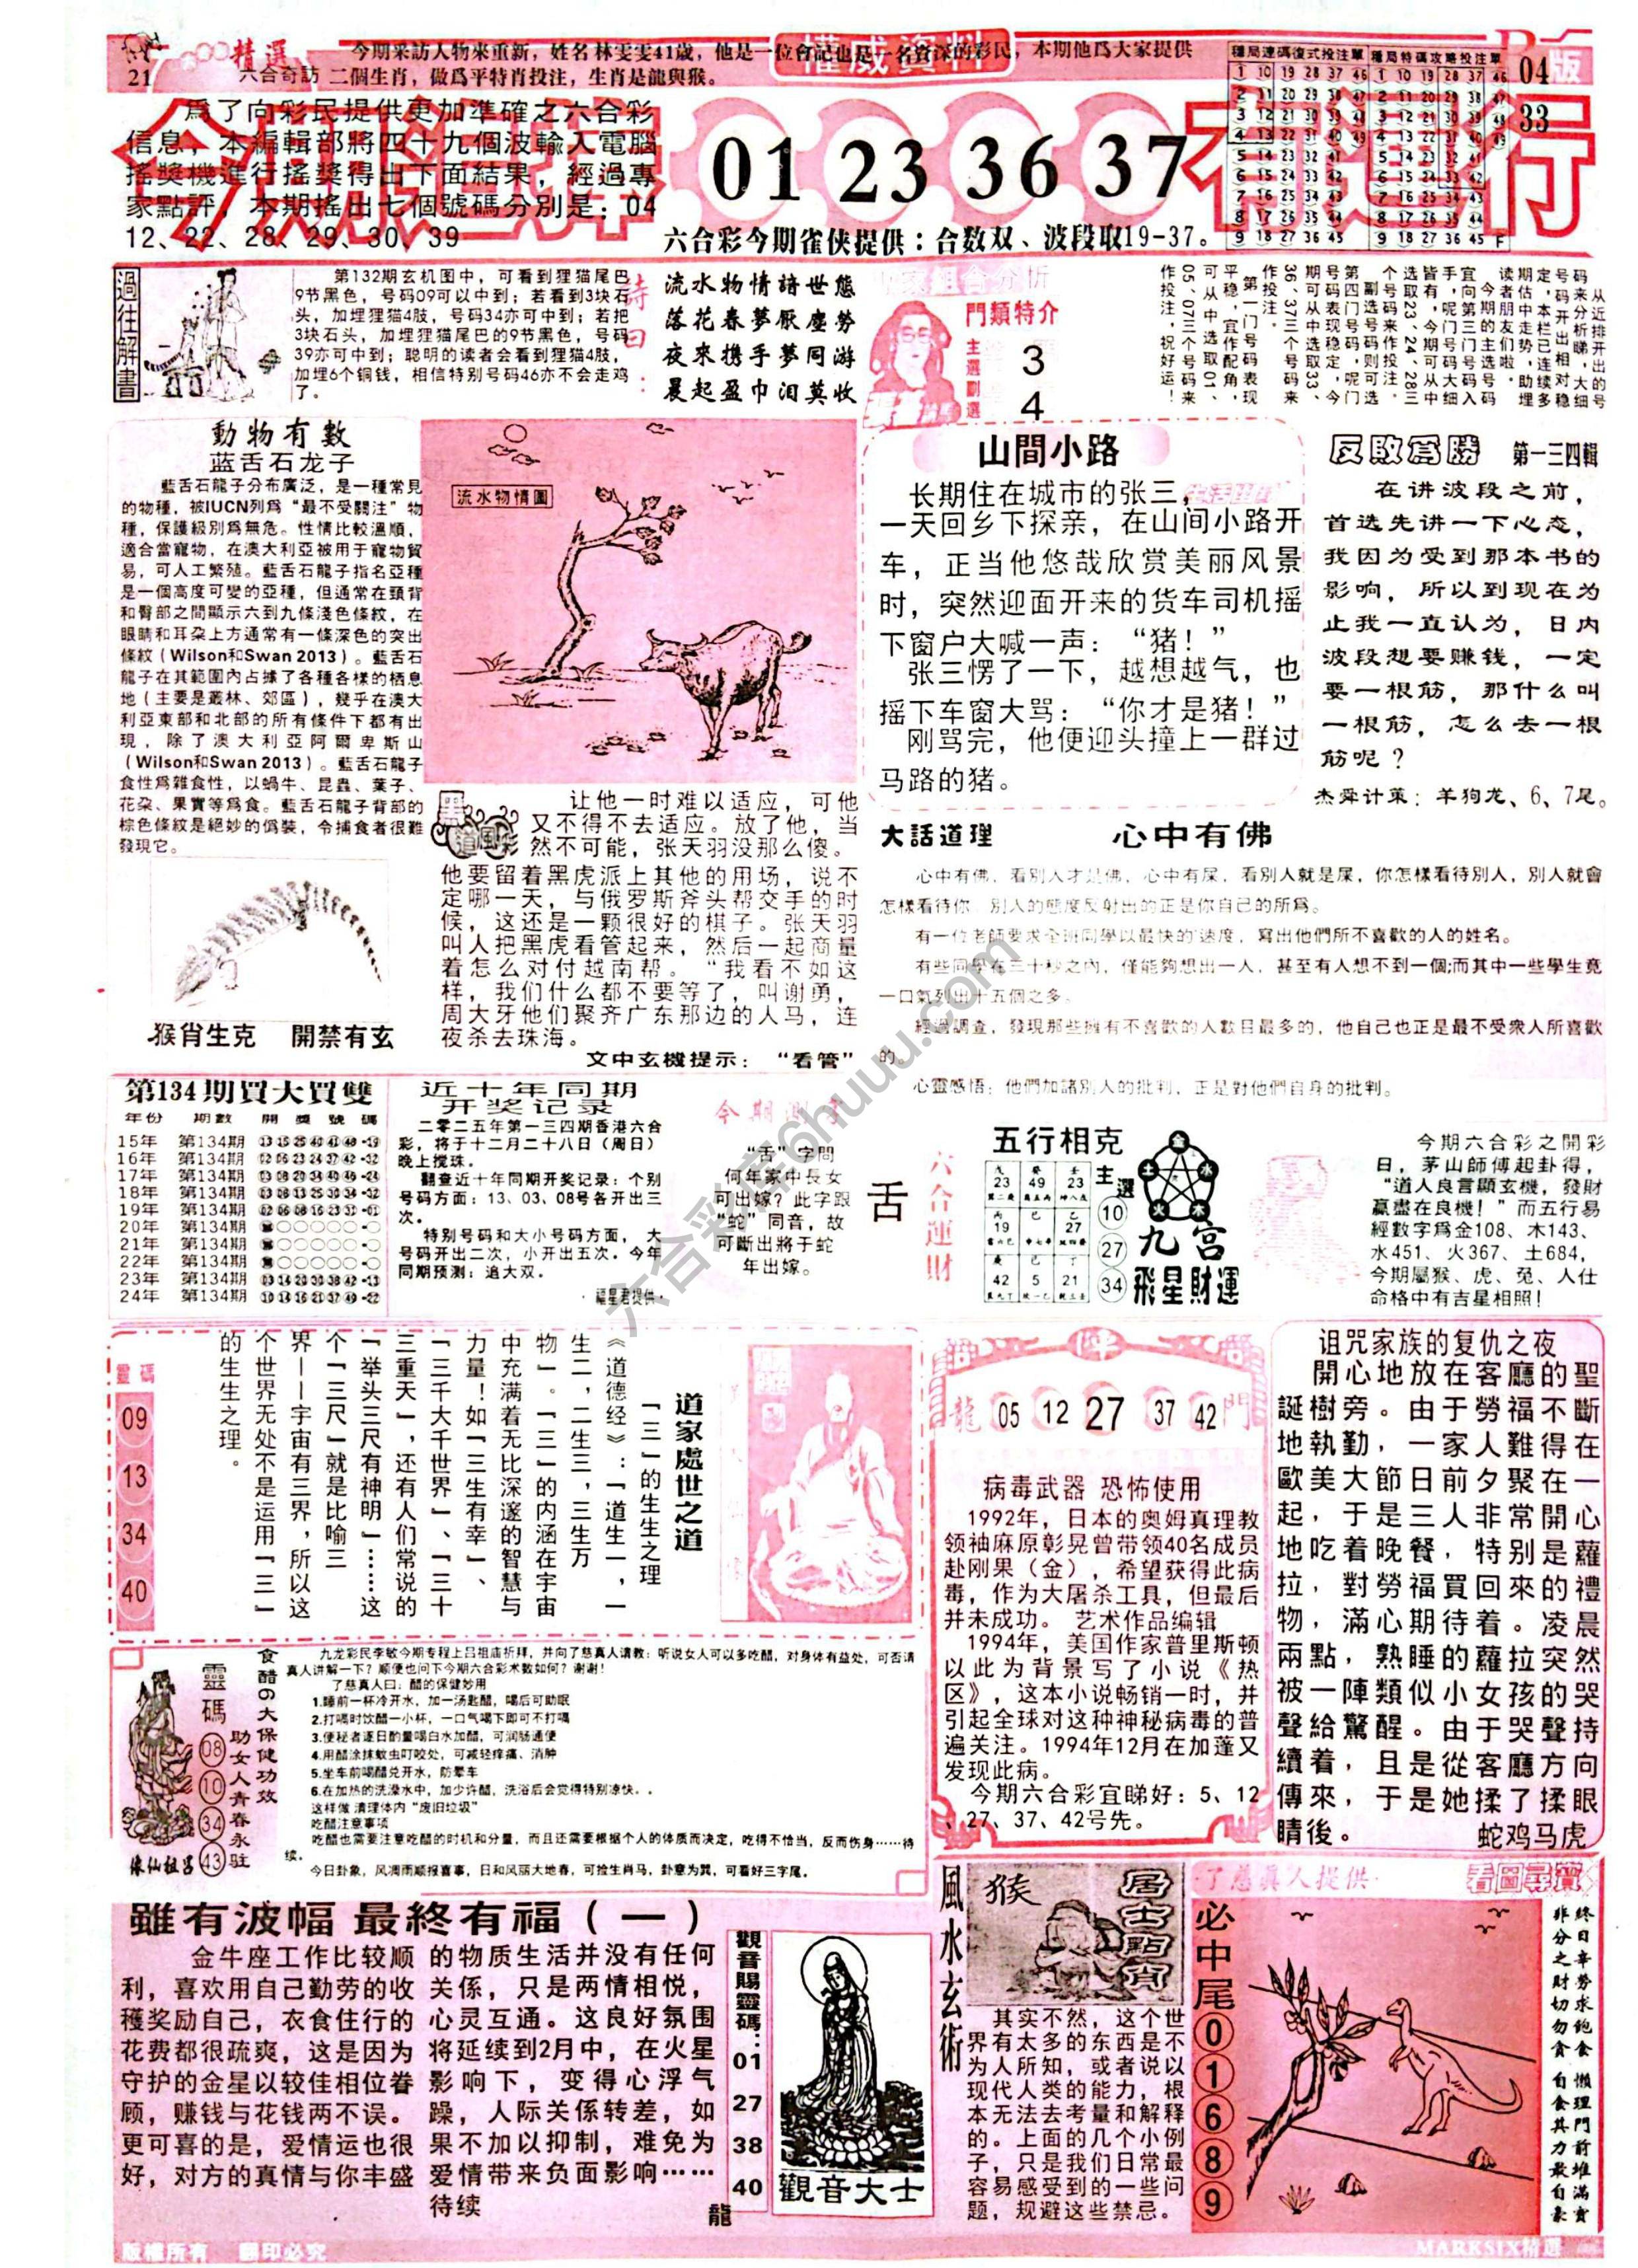 21
精選
六合奇訪
今期采訪人物來重新，姓名林雯雯41歲，他是一位會記也是一名資深的彩民，本期他爲大家提供
二個生肖，做爲平特肖投注，生肖是龍與猴。
權威資料
版
04
33
爲了向彩民提供更加準確之六合彩
信息，本編輯部將四十九個波輸入電腦
搖獎機進行搖獎得出下面結果，經過專
家點評，本期搖出七個號碼分別是：04
12、22、28、29、30、39
01 23 36 37
六合彩今期雀侠提供：合数双、波段取19-37。
過往解書
第132期玄机图中，可看到狸猫尾巴
9节黑色，号码09可以中到；若看到3块石
头，加埋狸猫4肢，号码34亦可中到；若把
3块石头，加埋狸猫尾巴的9节黑色，号码
39亦可中到；聪明的读者会看到狸猫4肢，
加埋6个铜钱，相信特别号码46亦不会走鸡
了。
詩曰：
流水物情諳世態
落花春夢厭塵勞
夜來携手夢同游
晨起盈巾泪莫收
門類特介
主選 3
副選 4
從近排开出的号
码来分析睇，大细
号码开出相对稳
定，本栏已连续多
期估中走势，助埋
读者朋友们啦。
今期的主选号码
宜向第三门号码入
手，呢门号码大细
皆有，今期可从中
选取23、24、28三
个号码来作投注。
副选号码则可选
第四门号码，呢门
号码表现稳定，今
期可从中选取33、
36、37三个号码来
作投注。
第一门号码表现
平稳，宜作配角，
可从中选取01、
05、07三个号码来
作投注，祝好运！
動物有數
蓝舌石龙子
藍舌石龍子分布廣泛，是一種常見
的物種，被IUCN列爲“最不受關注”物
種，保護級別爲無危。性情比較溫順，
適合當寵物，在澳大利亞被用于寵物貿
易，可人工繁殖。藍舌石龍子指名亞種
是一個高度可變的亞種，但通常在頸背
和臀部之間顯示六到九條淺色條紋，在
眼睛和耳朶上方通常有一條深色的突出
條紋（Wilson和Swan 2013）。藍舌石
龍子在其範圍內占據了各種各樣的栖息
地（主要是叢林、郊區），幾乎在澳大
利亞東部和北部的所有條件下都有出
現，除了澳大利亞阿爾卑斯山
（Wilson和Swan 2013）。藍舌石龍子
食性爲雜食性，以蝸牛、昆蟲、葉子、
花朶、果實等爲食。藍舌石龍子背部的
棕色條紋是絕妙的僞裝，令捕食者很難
發現它。
猴肖生克 開禁有玄
流水物情圖
黑道風彩
让他一时难以适应，可他
又不得不去适应。放了他，当
然不可能，张天羽没那么傻。
他要留着黑虎派上其他的用场，说不
定哪一天，与俄罗斯斧头帮交手的时
候，这还是一颗很好的棋子。张天羽
叫人把黑虎看管起来，然后一起商量
着怎么对付越南帮。“我看不如这
样，我们什么都不要等了，叫谢勇，
周大牙他们聚齐广东那边的人马，连
夜杀去珠海。
文中玄機提示：“看管”
山間小路
长期住在城市的张三，
一天回乡下探亲，在山间小路开
车，正当他悠哉欣赏美丽风景
时，突然迎面开来的货车司机摇
下窗户大喊一声：“猪！”
张三愣了一下，越想越气，也
摇下车窗大骂：“你才是猪！”
刚骂完，他便迎头撞上一群过
马路的猪。
反敗爲勝 第一三四輯
在讲波段之前，
首选先讲一下心态，
我因为受到那本书的
影响，所以到现在为
止我一直认为，日内
波段想要赚钱，一定
要一根筋，那什么叫
一根筋，怎么去一根
筋呢？
杰舜计策：羊狗龙、6、7尾。
大話道理 心中有佛
心中有佛，看別人才是佛，心中有屎，看別人就是屎，你怎樣看待別人，別人就會
怎樣看待你，別人的態度反射出的正是你自己的所爲。
有一位老師要求全班同學以最快的速度，寫出他們所不喜歡的人的姓名。
有些同學在三十秒之內，僅能夠想出一人，甚至有人想不到一個；而其中一些學生竟
一口氣列出十五個之多。
經過調查，發現那些擁有不喜歡的人數目最多的，他自己也正是最不受衆人所喜歡
的。
心靈感悟：他們加諸別人的批判，正是對他們自身的批判。
第134期買大買雙
年份 期數 開獎號碼
15年 第134期 13 15 25 40 41 48-19
16年 第134期
17年 第134期
18年 第134期
19年 第134期
20年 第134期
21年 第134期
22年 第134期
23年 第134期
24年 第134期
近十年同期
开奖记录
二零二五年第一三四期香港六合
彩，将于十二月二十八日（周日）
晚上搅珠。
翻查近十年同期开奖记录：个别
号码方面：13、03、08号各开出三
次。
特别号码和大小号码方面，大
号码开出二次，小开出五次。今年
同期预测：追大双。
·福星君提供·
今期測字
“舌”字問
何年家中長女
可出嫁？此字跟
“蛇”同音，故
可斷出將于蛇
年出嫁。
舌
六合運財
五行相克
主選
10
27
34
戊 癸 壬
23 49 23
丙 己 乙
19 27
庚 己 丁
42 5 21
金
水
木
火
土
九宮
飛星財運
今期六合彩之開彩
日，茅山師傅起卦得，
“道人良言顯玄機，發財
贏盡在良機！”而五行易
經數字爲金108、木143、
水451、火367、土684，
今期屬猴、虎、兔、人仕
命格中有吉星相照！
靈碼
09
13
34
40
道家處世之道
「三」的生生之理
《道德经》：「道生一，一
生二，二生三，三生万
物」。「三」的内涵在宇宙
中充满着无比深邃的智慧与
力量！如「三生有幸」、
「三千大千世界」、「三十
三重天」，还有人们常说的
「举头三尺有神明」……这
个「三尺」就是比喻三
界——宇宙有三界，所以这
个世界无处不是运用「三」
的生生之理。
龍 05 12 27 37 42 門
病毒武器 恐怖使用
1992年，日本的奥姆真理教
领袖麻原彰晃曾带领40名成员
赴刚果（金），希望获得此病
毒，作为大屠杀工具，但最后
并未成功。 艺术作品编辑
1994年，美国作家普里斯顿
以此为背景写了小说《热
区》，这本小说畅销一时，并
引起全球对这种神秘病毒的普
遍关注。1994年12月在加蓬又
发现此病。
今期六合彩宜睇好：5、12
、27、37、42号先。
诅咒家族的复仇之夜
開心地放在客廳的聖
誕樹旁。由于勞福不斷
地執勤，一家人難得在
歐美大節日前夕聚在一
起，于是三人非常開心
地吃着晚餐，特別是蘿
拉，對勞福買回來的禮
物，滿心期待着。凌晨
兩點，熟睡的蘿拉突然
被一陣類似小女孩的哭
聲給驚醒。由于哭聲持
續着，且是從客廳方向
傳來，于是她揉了揉眼
睛後。 蛇鸡马虎
食醋の大保健功效
助女人青春永驻
靈碼
08
10
34
43
九龙彩民李敏今期专程上吕祖庙祈拜，并向了慈真人请教：听说女人可以多吃醋，对身体有益处，可否请
真人讲解一下？顺便也问下今期六合彩术数如何？谢谢！
了慈真人曰：醋的保健妙用
1.睡前一杯冷开水，加一汤匙醋，喝后可助眠
2.打嗝时饮醋一小杯，一口气喝下即可不打嗝
3.便秘者逐日酌量喝白水加醋，可润肠通便
4.用醋涂抹蚊虫叮咬处，可减轻痒痛、消肿
5.坐车前喝醋兑开水，防晕车
6.在加热的洗澡水中，加少许醋，洗浴后会觉得特别凉快。。
这样做 清理体内“废旧垃圾”
吃醋注意事项
吃醋也需要注意吃醋的时机和分量，而且还需要根据个人的体质而决定，吃得不恰当，反而伤身……待
续。
今日卦象，风凋雨顺报喜事，日和风丽大地春，可捡生肖马，卦意为巽，可看好三字尾。
雖有波幅 最終有福（一）
金牛座工作比较顺
利，喜欢用自己勤劳的收
穫奖励自己，衣食住行的
花费都很疏爽，这是因为
守护的金星以较佳相位眷
顾，赚钱与花钱两不误。
更可喜的是，爱情运也很
好，对方的真情与你丰盛
的物质生活并没有任何
关係，只是两情相悦，
心灵互通。这良好氛围
将延续到2月中，在火星
影响下，变得心浮气
躁，人际关係转差，如
果不加以抑制，难免为
爱情带来负面影响……
待续
龍
觀音賜靈碼：
01
27
38
40
觀音大士
風水玄術
猴
居士點肖
其实不然，这个世
界有太多的东西是不
为人所知，或者说以
现代人类的能力，根
本无法去考量和解释
的。上面的几个小例
子，只是我们日常最
容易感受到的一些问
题，规避这些禁忌。
·了慈真人提供·
看圖尋寶
必中尾
0
1
6
8
9
終日辛勞求飽食 懶理門前堆滿賣
非分之財切勿貪 自食其力最自豪
版權所有 翻印必究
MARKSIX精選
六合彩库6huuu.com